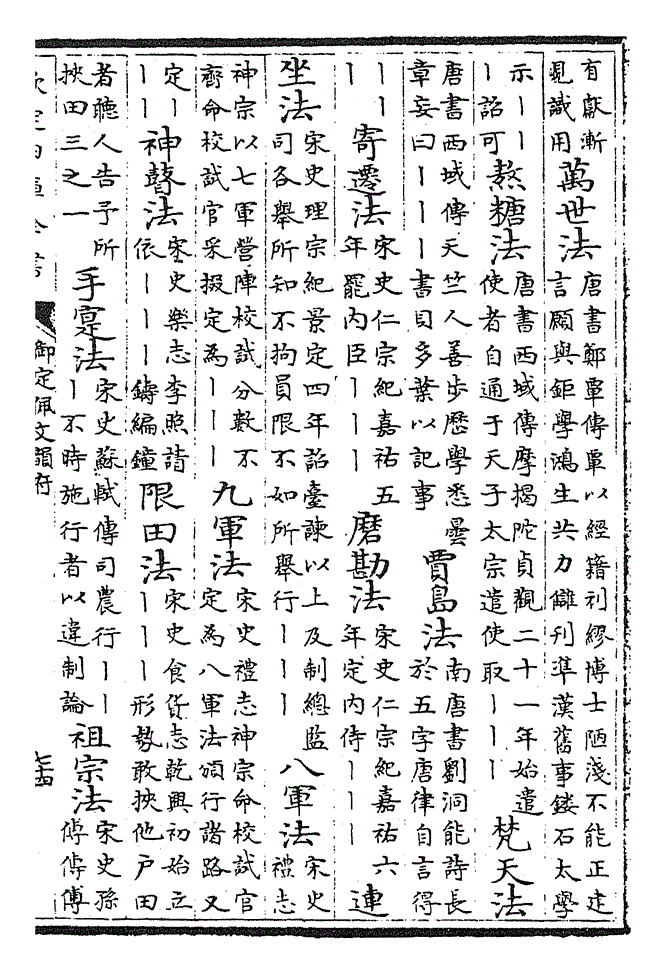 有獻漸
覩識用
萬世法
唐書鄭覃傳覃以經籍刓繆博士陋淺不能正建
言願與鉅學鴻生共力讎刊準漢舊事鏤石太學
示丨丨
丨詔可
熬糖法
唐書西域傳摩揭陀貞觀二十一年始遣
使者自通于天子太宗遣使取丨丨丨
梵天法
唐書西域傳天竺人善步歷學悉曇
章妄曰丨丨丨書目多葉以記事
賈島法
南唐書劉洞能詩長
於五字唐律自言得
丨丨
丨
寄遷法
宋史仁宗紀嘉祐五
年罷內臣丨丨丨
磨勘法
宋史仁宗紀嘉祐六
年定內侍丨丨丨
連
坐法
宋史理宗紀景定四年詔臺諫以上及制總監
司各舉所知不拘員限不如所舉行丨丨丨
八軍法
宋史
禮志
神宗以七軍營陣校試分數不
齊命校試官采掇定為丨丨丨
九軍法
宋史禮志神宗命校試官
定為八軍法頒行諸路又
定丨
丨丨
神瞽法
宋史樂志李照請
依丨丨丨鑄編鐘
限田法
宋史食貨志乾興初始立
丨丨丨形勢敢挾他戶田
者聽人告予所
挾田三之一
手寔法
宋史蘇軾傳司農行丨丨
丨不時施行者以違制論
祖宗法
宋史孫
傅傳傅
欽定四庫全書
御定佩文韻府